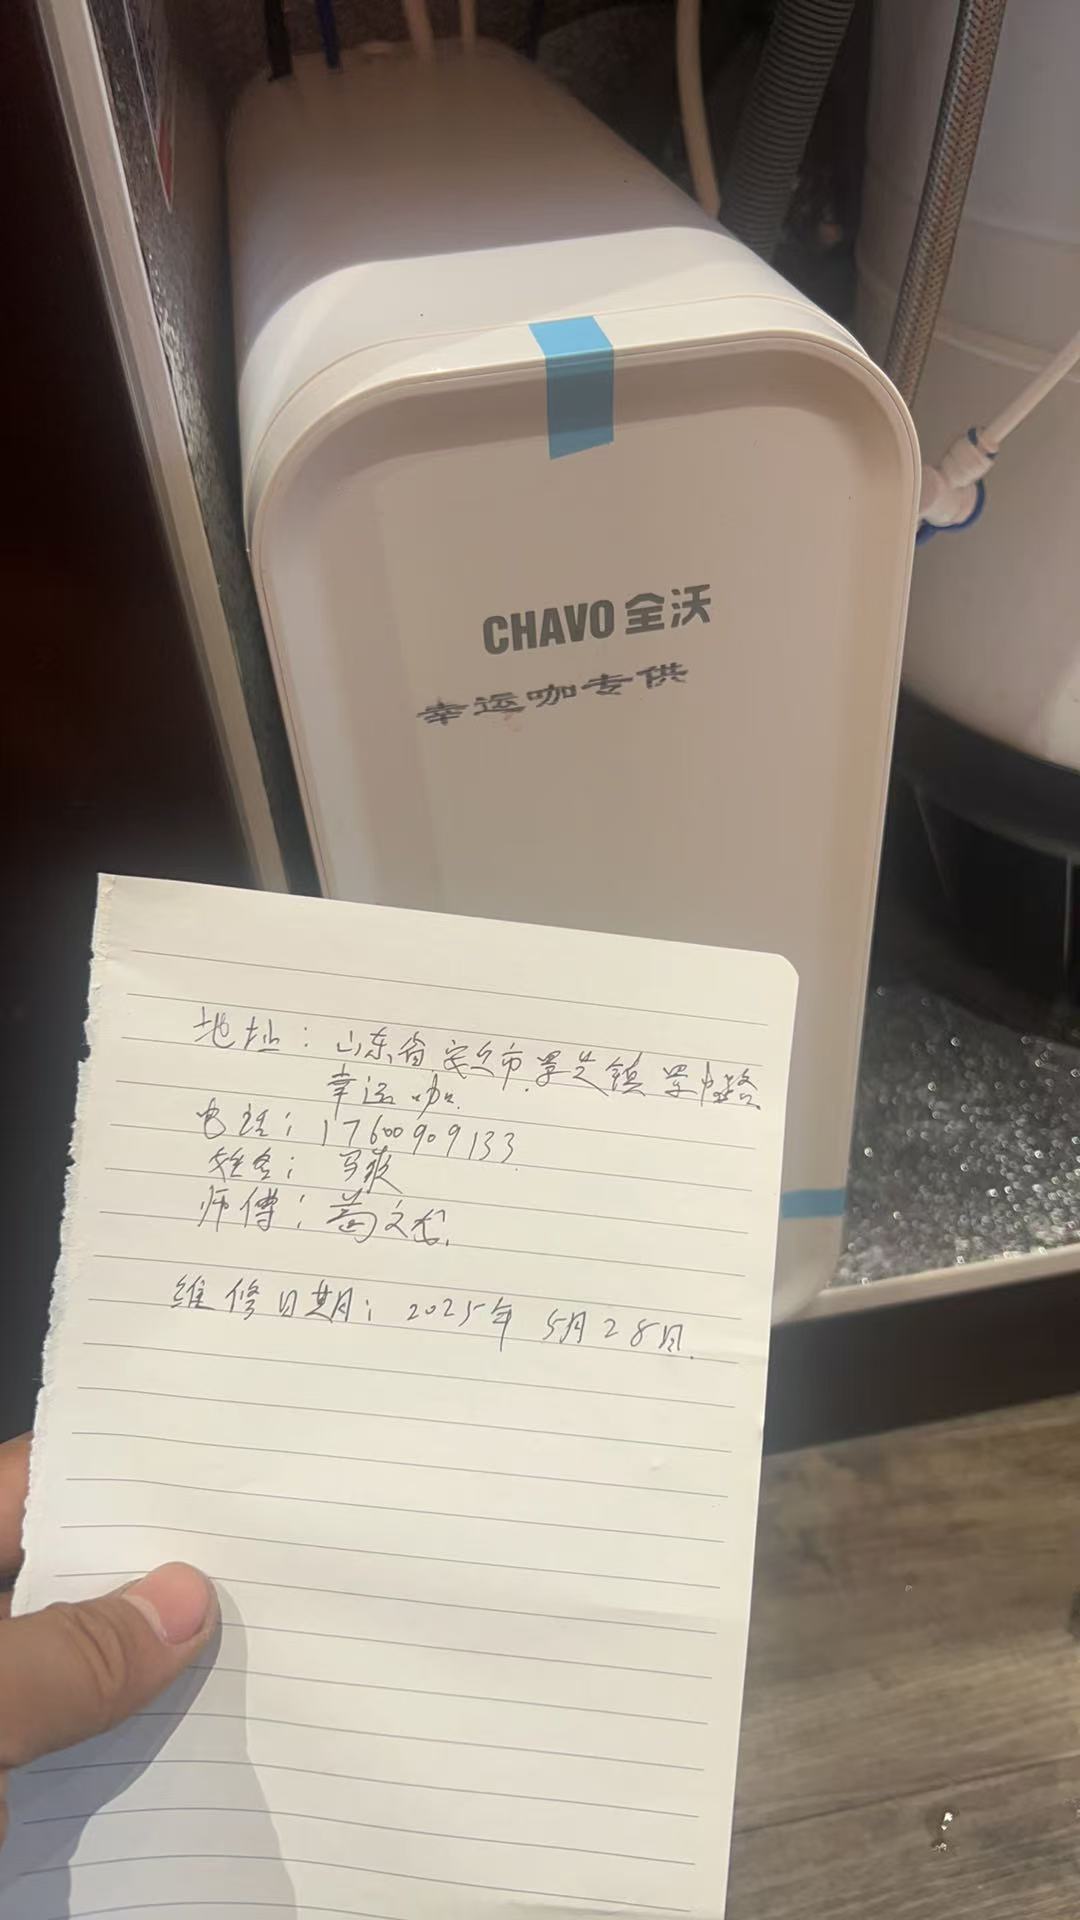 CHAVO 全沃
幸运咖专供
地址：山东省安丘市景芝镇景中路
幸运咖
电话：17600909133
姓名：马爽
师傅：葛文龙
维修日期：2025年5月28日